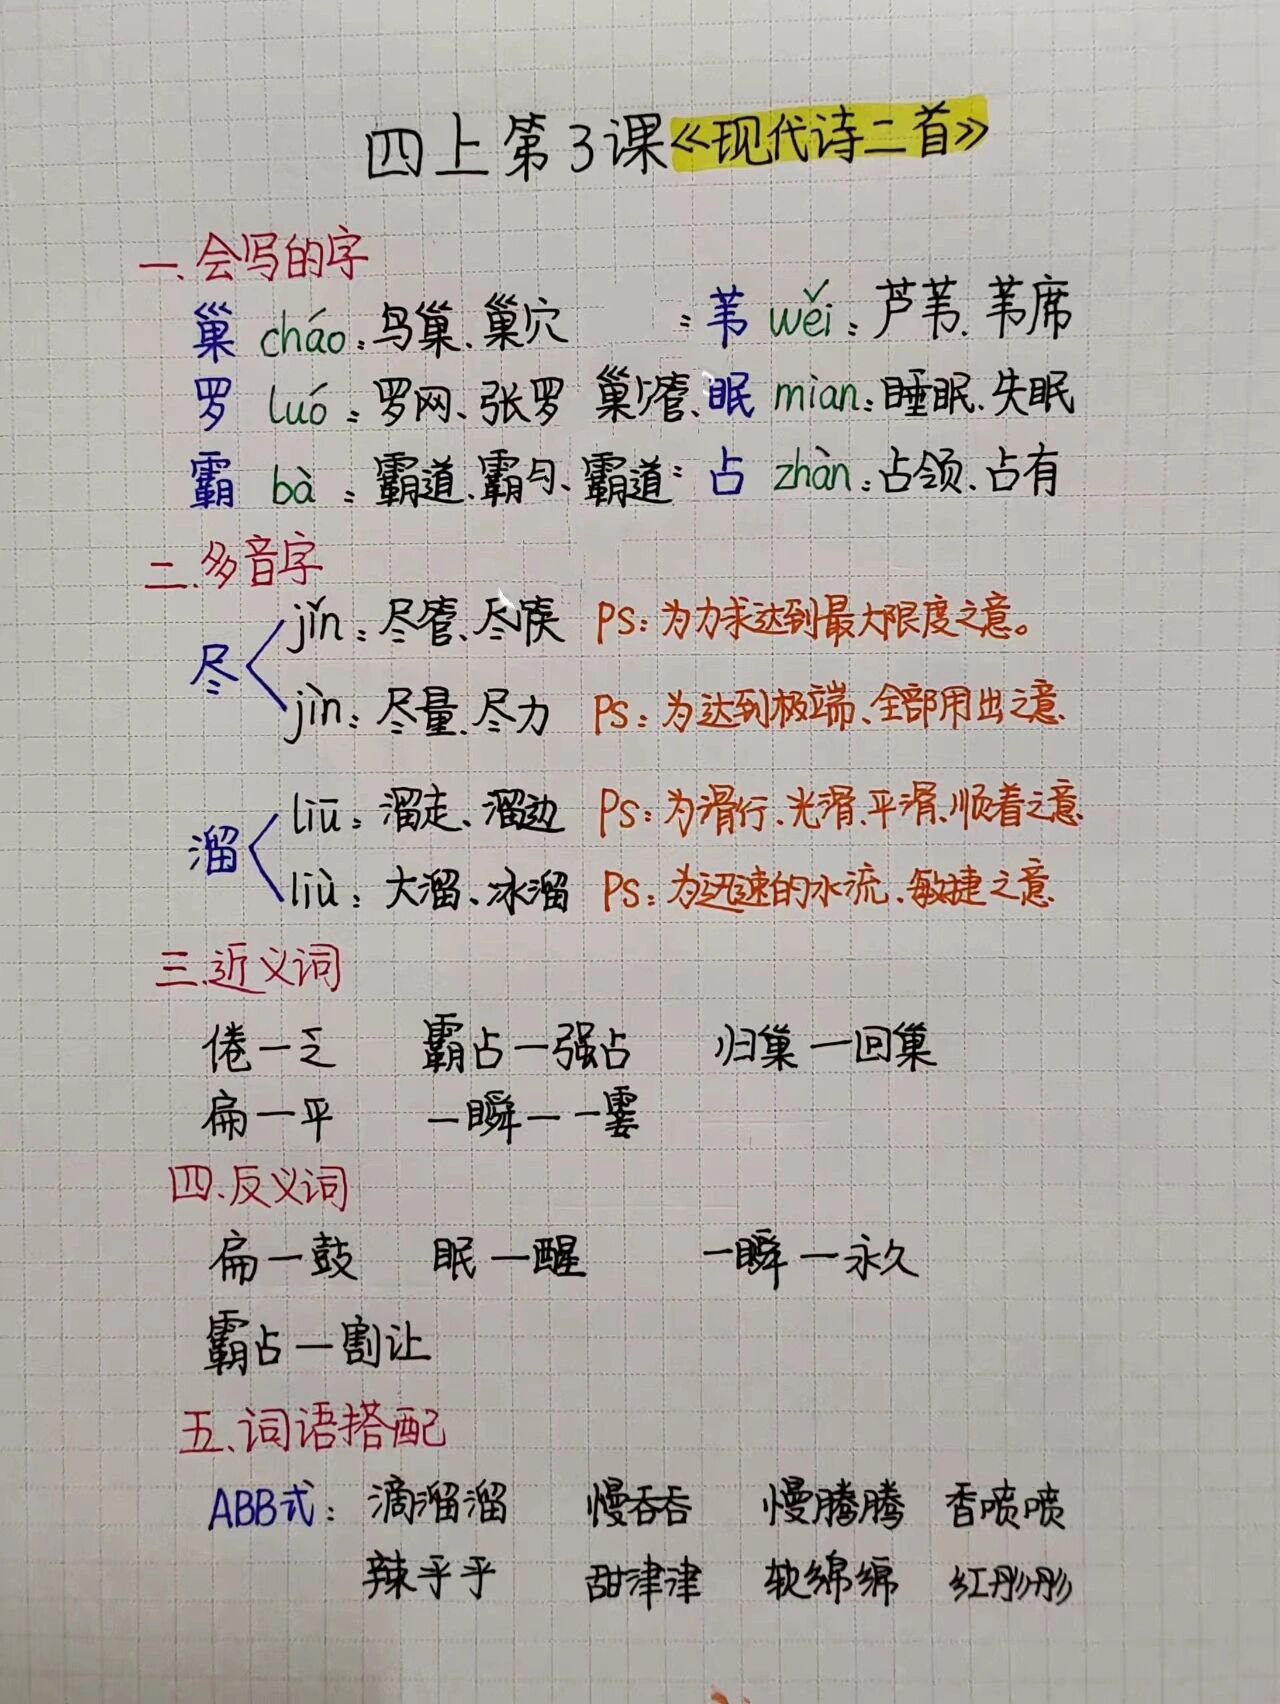 四上第3课《现代诗二首》
一.会写的字
巢 cháo:鸟巢、巢穴 : 苇 wěi:芦苇、苇席
罗 luó:罗网、张罗 巢 、眠 mian:睡眠、失眠
霸 bà:霸道、霸 、霸道: 占 zhàn:占领、占有
二.多音字
尽
jǐn:尽管、尽 PS:为力求达到最大限度之意。
jìn:尽量、尽力 PS:为达到极端、全部用出之意.
溜
liū:溜走、溜边 PS:为滑行、光滑、平滑、顺着之意
liù:大溜、冰溜 PS:为迅速的水流、敏捷之意
三.近义词
倦—乏 霸占—强占 归巢—回巢
扁—平 一瞬—一霎
四.反义词
扁—鼓 眠—醒 一瞬—永久
霸占—割让
五.词语搭配
ABB式: 滴溜溜 慢吞吞 慢腾腾 香喷喷
辣乎乎 甜津津 软绵绵 红彤彤